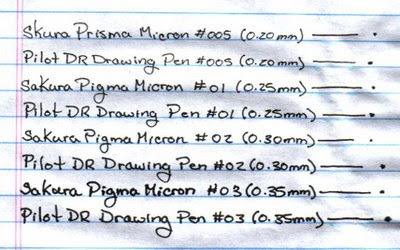 Skura Prisma Micron #005 (0.20mm)
Pilot DR Drawing Pen #005 (0.20mm)
Sakura Pigma Micron #01 (0.25mm)
Pilot DR Drawing Pen #01 (0.25mm)
Sakura Pigma Micron #02 (0.30mm)
Pilot DR Drawing Pen #02 (0.30mm)
Sakura Pigma Micron #03 (0.35mm)
Pilot DR Drawing Pen #03 (0.35mm)